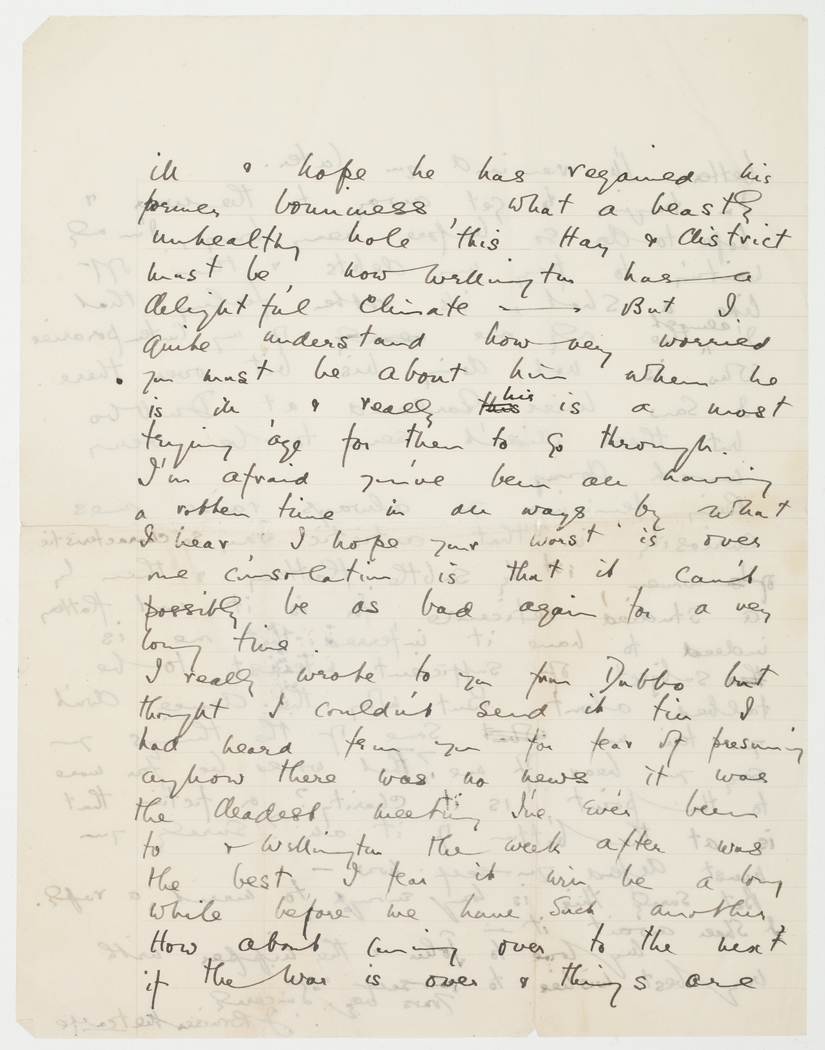 ill & hope he has regained his
former bonniness, what a beastly
unhealthy hole this Hay & district
must be, now Wellington has a
delightful Climate — . But I
quite understand how very worried
you must be about him when he
is ill & really this his is a most
trying age for them to go through.
I'm afraid you've been all having
a rotten time in all ways by what
I hear. I hope your worst is over
one consolation is that it can't
possibly be as bad again for a very
long time.
I really wrote to you from Dubbo but
thought I couldn't send it till I
had heard from you for fear of presuming
anyhow there was no news it was
the deadest meeting I've ever been
to & Wellington the week after was
the best I fear it will be a long
while before we have such another.
How about coming over to the next?
if the War is over & things are